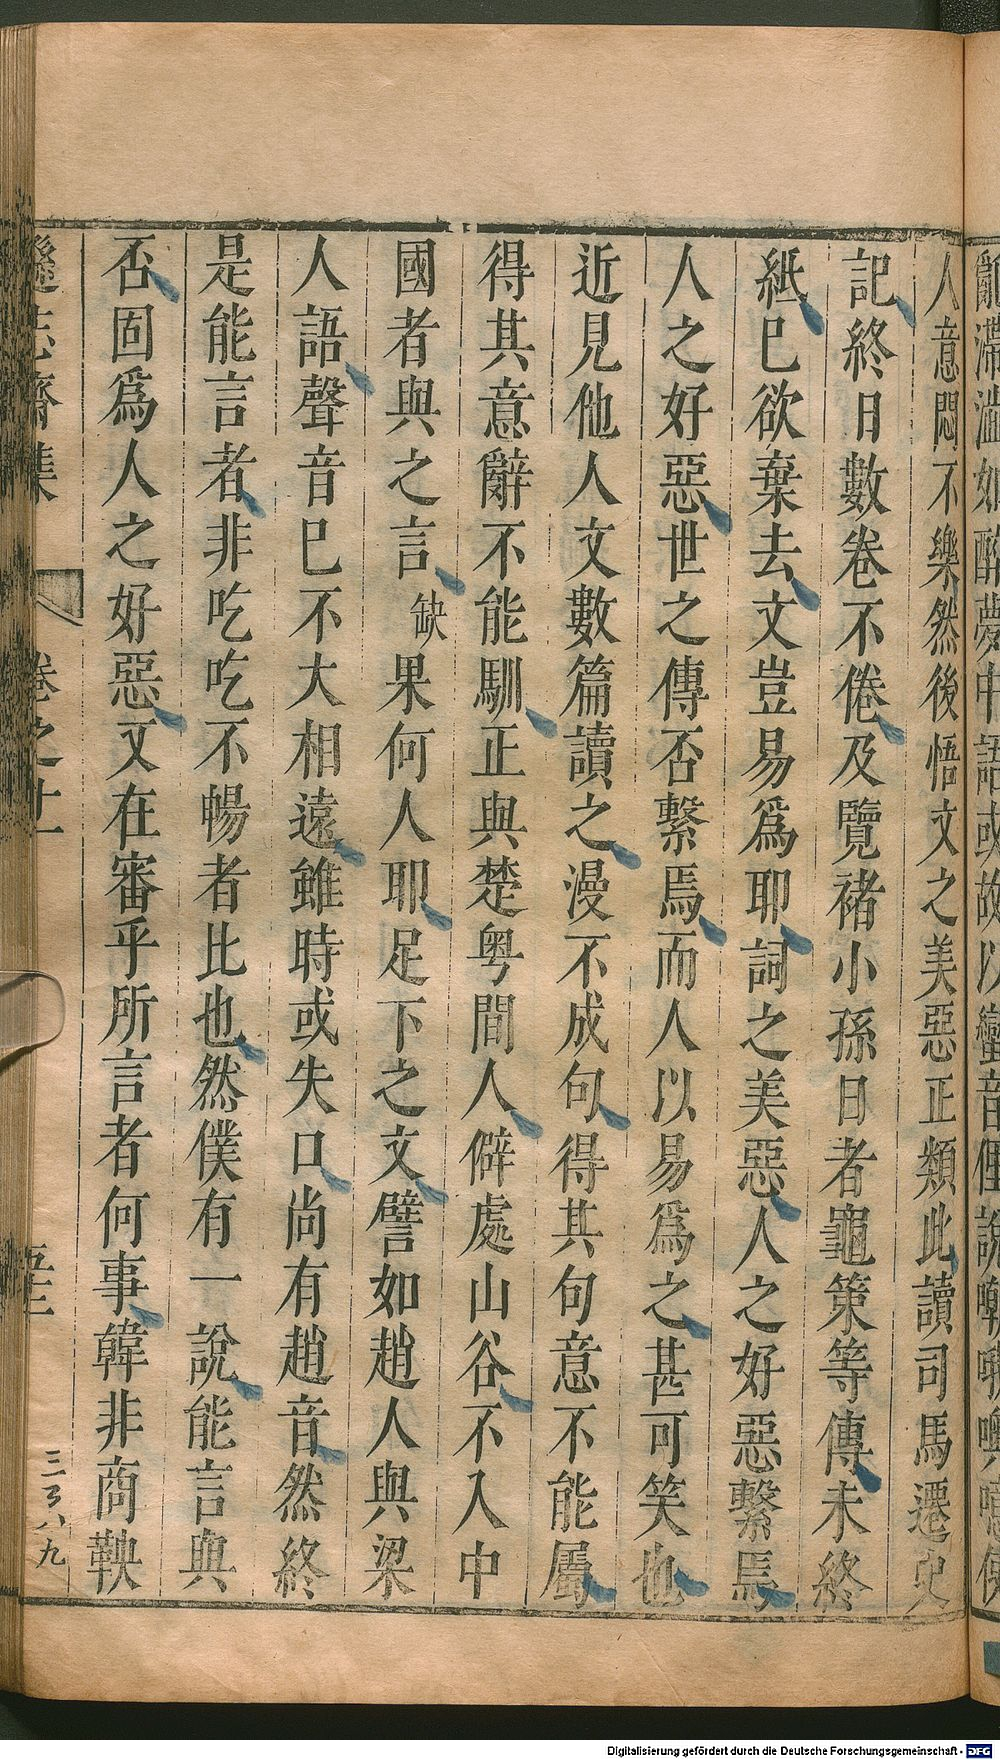 人意悶不樂然後悟文之美惡正類此讀司馬遷史
記終日數卷不倦及覽褚小孫日者龜策等傳未終
紙已欲棄去文豈易爲耶詞之美惡人之好惡繫焉
人之好惡世之傳否繫焉而人以易爲之甚可笑也
近見他人文數篇讀之漫不成句得其句意不能屬
得其意辭不能馴正與楚粤間人僻處山谷不入中
國者與之言缺果何人耶足下之文譬如趙人與梁
人語聲音已不大相遠雖時或失口尚有趙音然終
是能言者非吃吃不暢者比也然僕有一說能言與
否固爲人之好惡又在審乎所言者何事韓非商鞅
遜志齋集 卷之十一 五十二 三百八九
Digitalisierung gefördert durch die Deutsche Forschungsgemeinschaft - DFG